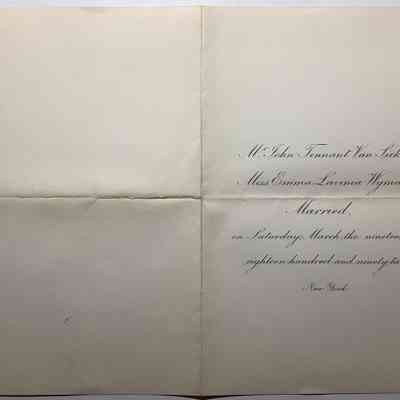 Mr John Tennant Van Sick
Miss Emma Lavinea Wyma
Married,
on Saturday, March the ninetee
eighteen hundred and ninety
New York